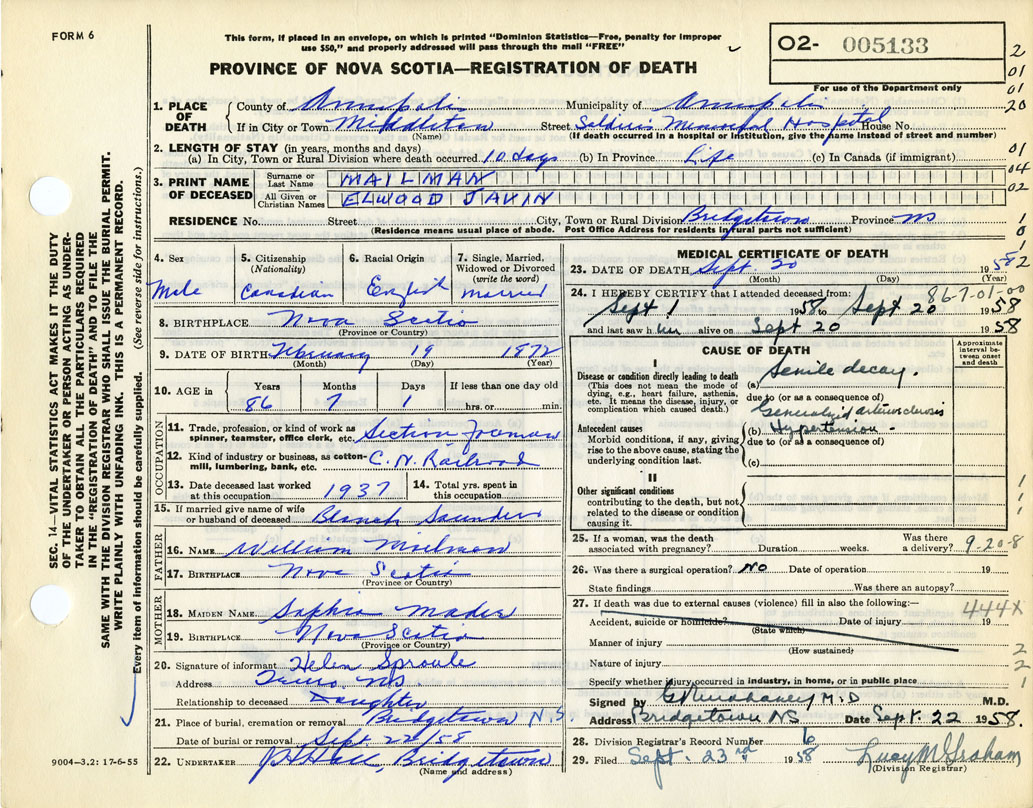 FORM 6
This form, if placed in an envelope, on which is printed "Dominion Statistics—Free, penalty for improper
use $50," and properly addressed will pass through the mail "FREE"
O2- 005133
For use of the Department only
PROVINCE OF NOVA SCOTIA—REGISTRATION OF DEATH
2
01
01
20
01
04
02
1
0
1
2
1. PLACE OF DEATH
County of Annapolis Municipality of Annapolis
If in City or Town Middleton Street Soldiers Memorial Hospital House No.
(Name) (If death occurred in a hospital or institution, give the name instead of street and number)
2. LENGTH OF STAY (in years, months and days)
(a) In City, Town or Rural Division where death occurred 10 days (b) In Province Life (c) In Canada (if immigrant)
3. PRINT NAME OF DECEASED
Surname or Last Name MAILMAN
All Given or Christian Names ELWOOD JAVIN
RESIDENCE No. Street City, Town or Rural Division Bridgetown Province NS
(Residence means usual place of abode. Post Office Address for residents in rural parts not sufficient)
4. Sex
Male
5. Citizenship (Nationality)
Canadian
6. Racial Origin
English
7. Single, Married, Widowed or Divorced (write the word)
married
8. BIRTHPLACE Nova Scotia
(Province or Country)
9. DATE OF BIRTH February 19 1872
(Month) (Day) (Year)
10. AGE in
Years Months Days If less than one day old
86 7 1 hrs. or min.
OCCUPATION
11. Trade, profession, or kind of work as
spinner, teamster, office clerk, etc. Section Foreman
12. Kind of industry or business, as cotton-
mill, lumbering, bank, etc. C. N. Railroad
13. Date deceased last worked
at this occupation 1937
14. Total yrs. spent in
this occupation
15. If married give name of wife
or husband of deceased Blanch Saunders
FATHER
16. NAME William Mailman
17. BIRTHPLACE Nova Scotia
(Province or Country)
MOTHER
18. MAIDEN NAME Sophia Mader
19. BIRTHPLACE Nova Scotia
(Province or Country)
20. Signature of informant Helen Sproule
Address Truro NS
Relationship to deceased Daughter
21. Place of burial, cremation or removal Bridgetown N.S.
Date of burial or removal Sept. 22/58
22. UNDERTAKER Bridgetown
(Name and address)
MEDICAL CERTIFICATE OF DEATH
23. DATE OF DEATH Sept. 20 1958
(Month) (Day) (Year)
24. I HEREBY CERTIFY that I attended deceased from: 86-7-01-00
Sept 1 1958 to Sept 20 1958
and last saw him alive on Sept 20 1958
CAUSE OF DEATH
Approximate interval between onset and death
I
Disease or condition directly leading to death
(This does not mean the mode of
dying, e.g., heart failure, asthenia,
etc. It means the disease, injury, or
complication which caused death.)
(a) Senile decay.
due to (or as a consequence of)
Generalized arteriosclerosis
Antecedent causes
Morbid conditions, if any, giving
rise to the above cause, stating the
underlying condition last.
(b) Hypertension -
due to (or as a consequence of)
(c)
II
Other significant conditions
contributing to the death, but not
related to the disease or condition
causing it.
1
1
1
25. If a woman, was the death
associated with pregnancy? Duration weeks. Was there
a delivery? 9-20-8
26. Was there a surgical operation? No Date of operation 19
State findings Was there an autopsy?
27. If death was due to external causes (violence) fill in also the following:— 444X
Accident, suicide or homicide? Date of injury 19
(State which)
Manner of injury
(How sustained)
Nature of injury
2
2
1
Specify whether injury occurred in industry, in home, or in public place
Signed by M.D M.D.
Address Bridgetown NS Date Sept. 22 1958.
28. Division Registrar's Record Number 6
29. Filed Sept. 23rd 1958 Lucy M Graham
(Division Registrar)
9004—3.2: 17-6-55
SEC. 14—VITAL STATISTICS ACT MAKES IT THE DUTY
OF THE UNDERTAKER OR PERSON ACTING AS UNDER-
TAKER TO OBTAIN ALL THE PARTICULARS REQUIRED
IN THE "REGISTRATION OF DEATH" AND TO FILE THE
SAME WITH THE DIVISION REGISTRAR WHO SHALL ISSUE THE BURIAL PERMIT.
WRITE PLAINLY WITH UNFADING INK. THIS IS A PERMANENT RECORD.
Every item of information should be carefully supplied. (See reverse side for instructions.)